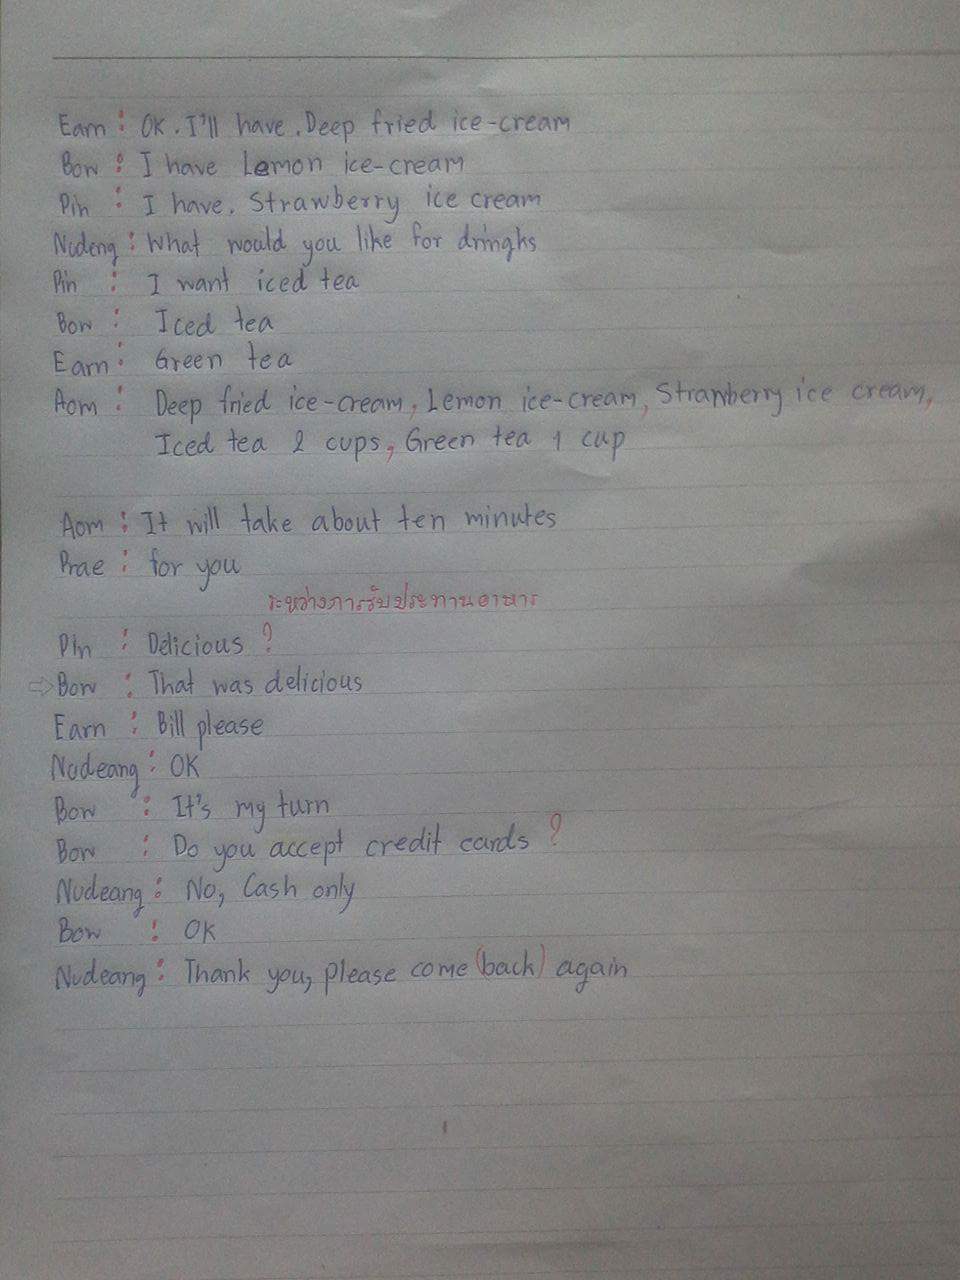 Earn : OK. I'll have. Deep fried ice-cream
Bow : I have Lemon ice-cream
Pin : I have, Strawberry ice cream
Nudeng : What would you like for dringks
Pin : I want iced tea
Bow : Iced tea
Earn : Green tea
Aom : Deep fried ice-cream, Lemon ice-cream, Strawberry ice cream,
Iced tea 2 cups, Green tea 1 cup
Aom : It will take about ten minutes
Prae : for you
ระหว่างการรับประทานอาหาร
Pin : Delicious ?
⇨ Bow : That was delicious
Earn : Bill please
Nudeang : OK
Bow : It's my turn
Bow : Do you accept credit cards ?
Nudeang : No, Cash only
Bow : OK
Nudeang : Thank you, please come (back) again